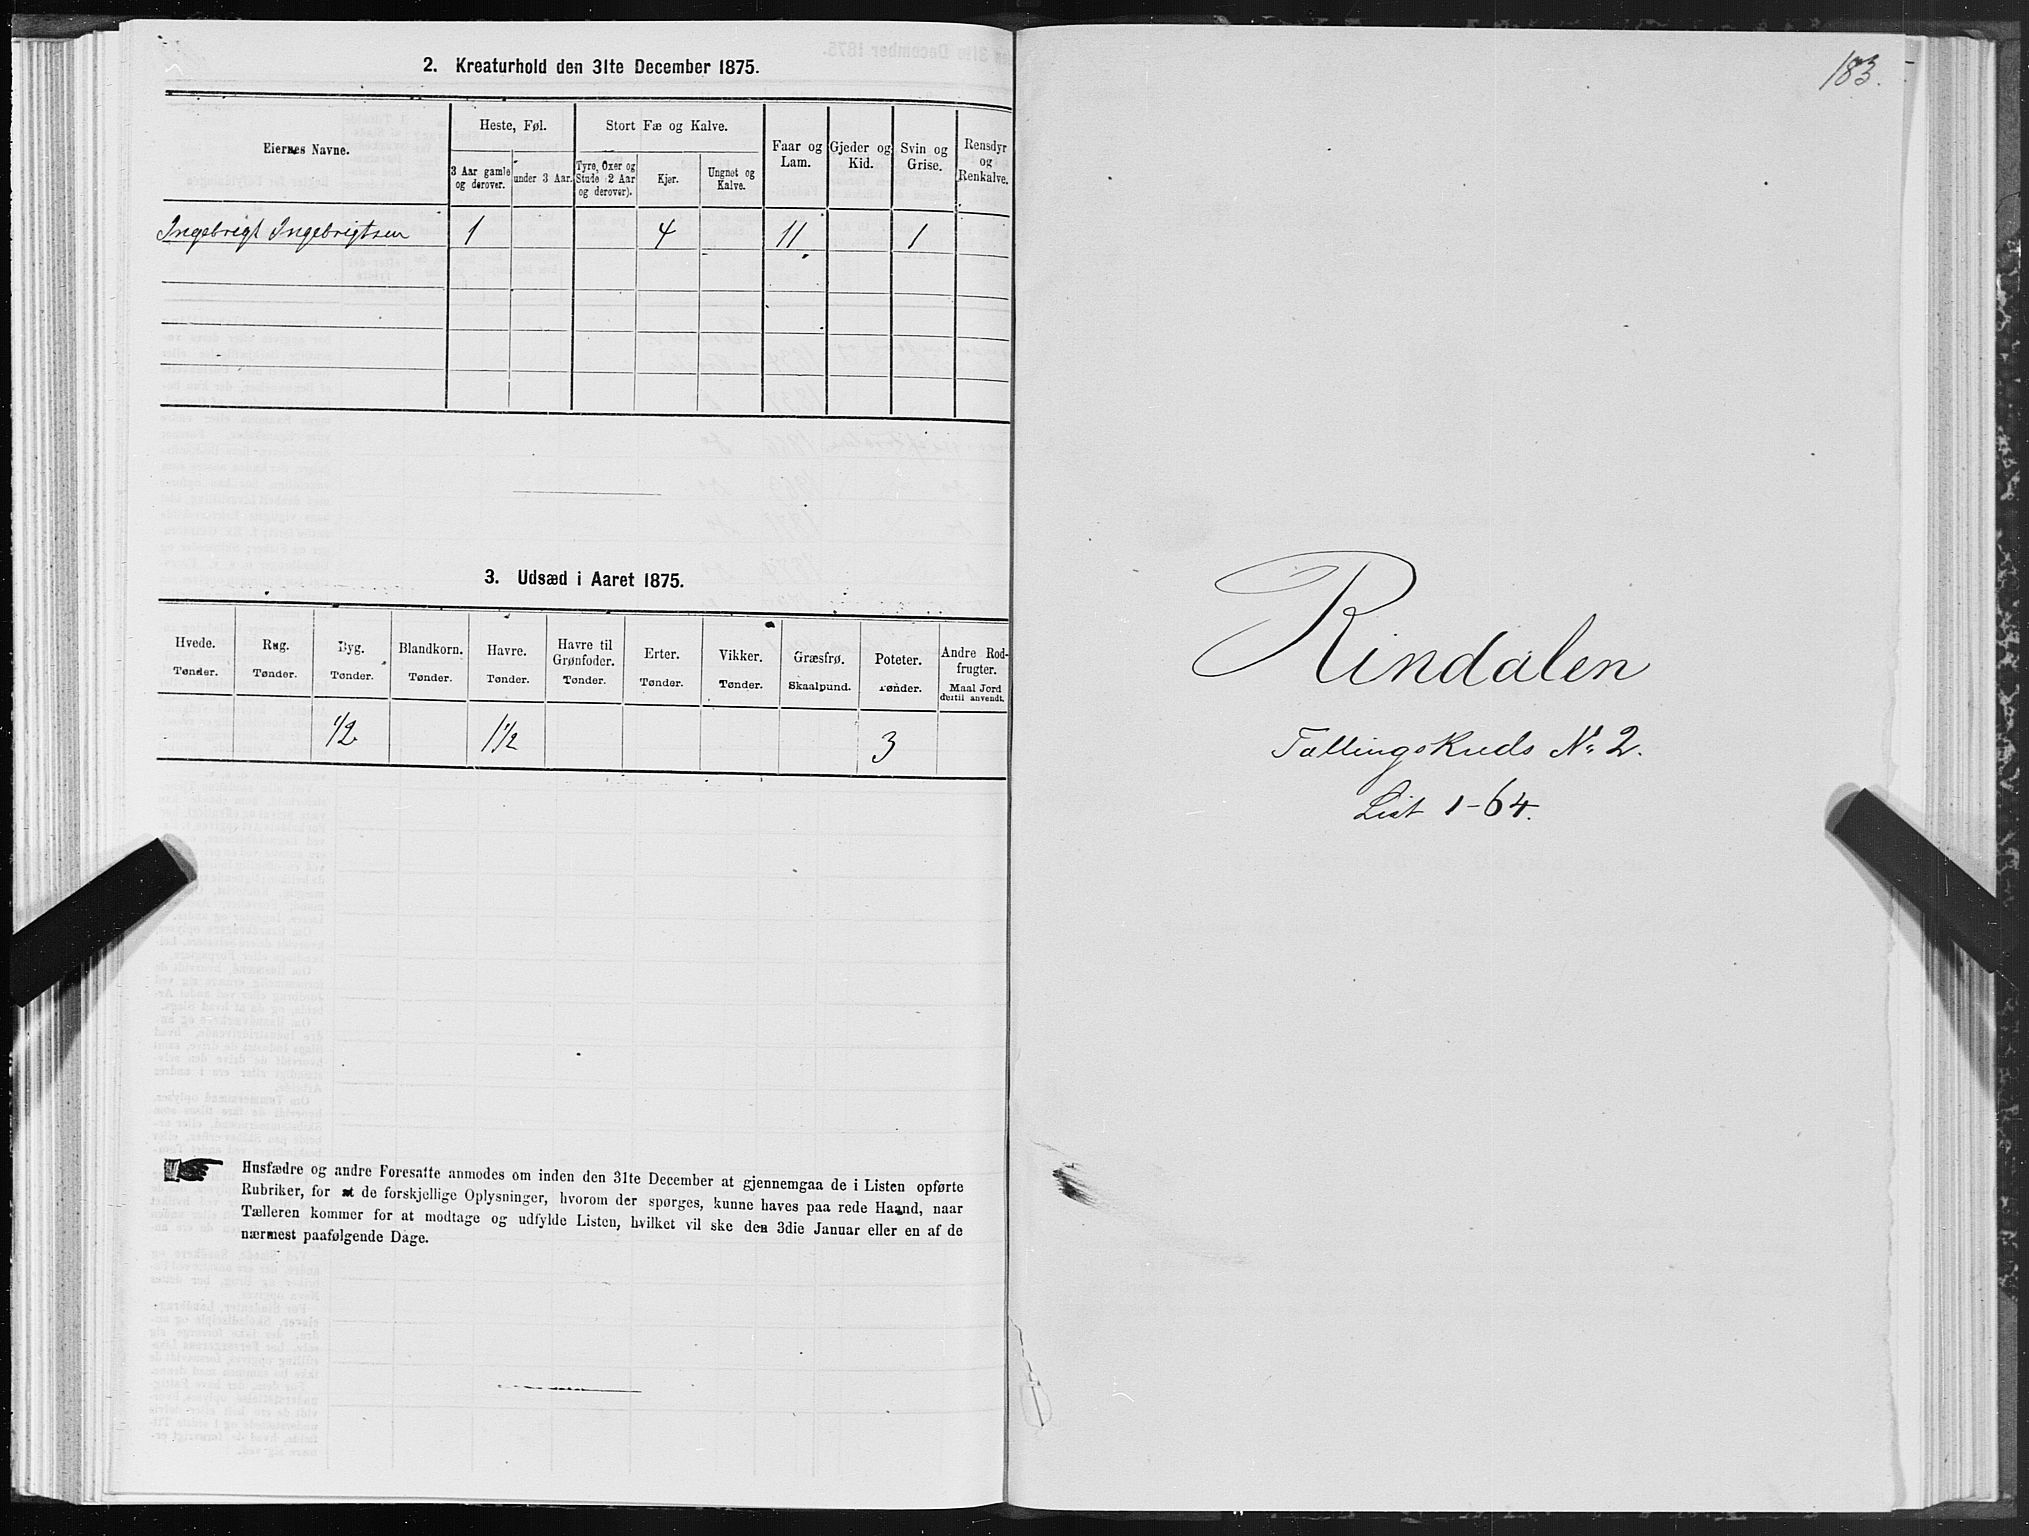 2. Kreaturhold den 31te December 1875.
Eiernes Navne.
Heste, Føl.
3 Aar gamle og derover.
under 3 Aar.
Stort Fæ og Kalve.
Tyre, Oxer og Stude (2 Aar og derover).
Kjør.
Ungnøt og Kalve.
Faar og Lam.
Gjeder og Kid.
Svin og Grise.
Rensdyr og Renkalve.
Ingebrigt Ingebrigtsen 1 4 11 1
3. Udsæd i Aaret 1875.
Hvede. Rug. Byg. Blandkorn. Havre. Havre til Grønfoder. Erter. Vikker. Græsfrø. Poteter. Andre Rodfrugter.
Tønder. Tønder. Tønder. Tønder. Tønder. Tønder. Tønder. Tønder. Skaalpund. Tønder. Maal Jord dertil anvendt.
1/2 1 1/2 3
Husfædre og andre Foresatte anmodes om inden den 31te December at gjennemgaa de i Listen opførte
Rubriker, for at de forskjellige Oplysninger, hvorom der spørges, kunne haves paa rede Haand, naar
Tælleren kommer for at modtage og udfylde Listen, hvilket vil ske den 3die Januar eller en af de
nærmest paafølgende Dage.
183.
Rindalen
Tællingskreds No 2.
List 1-64.